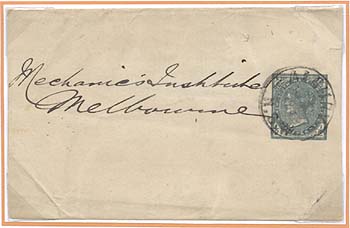 Mechanic's Institute
Melbourne